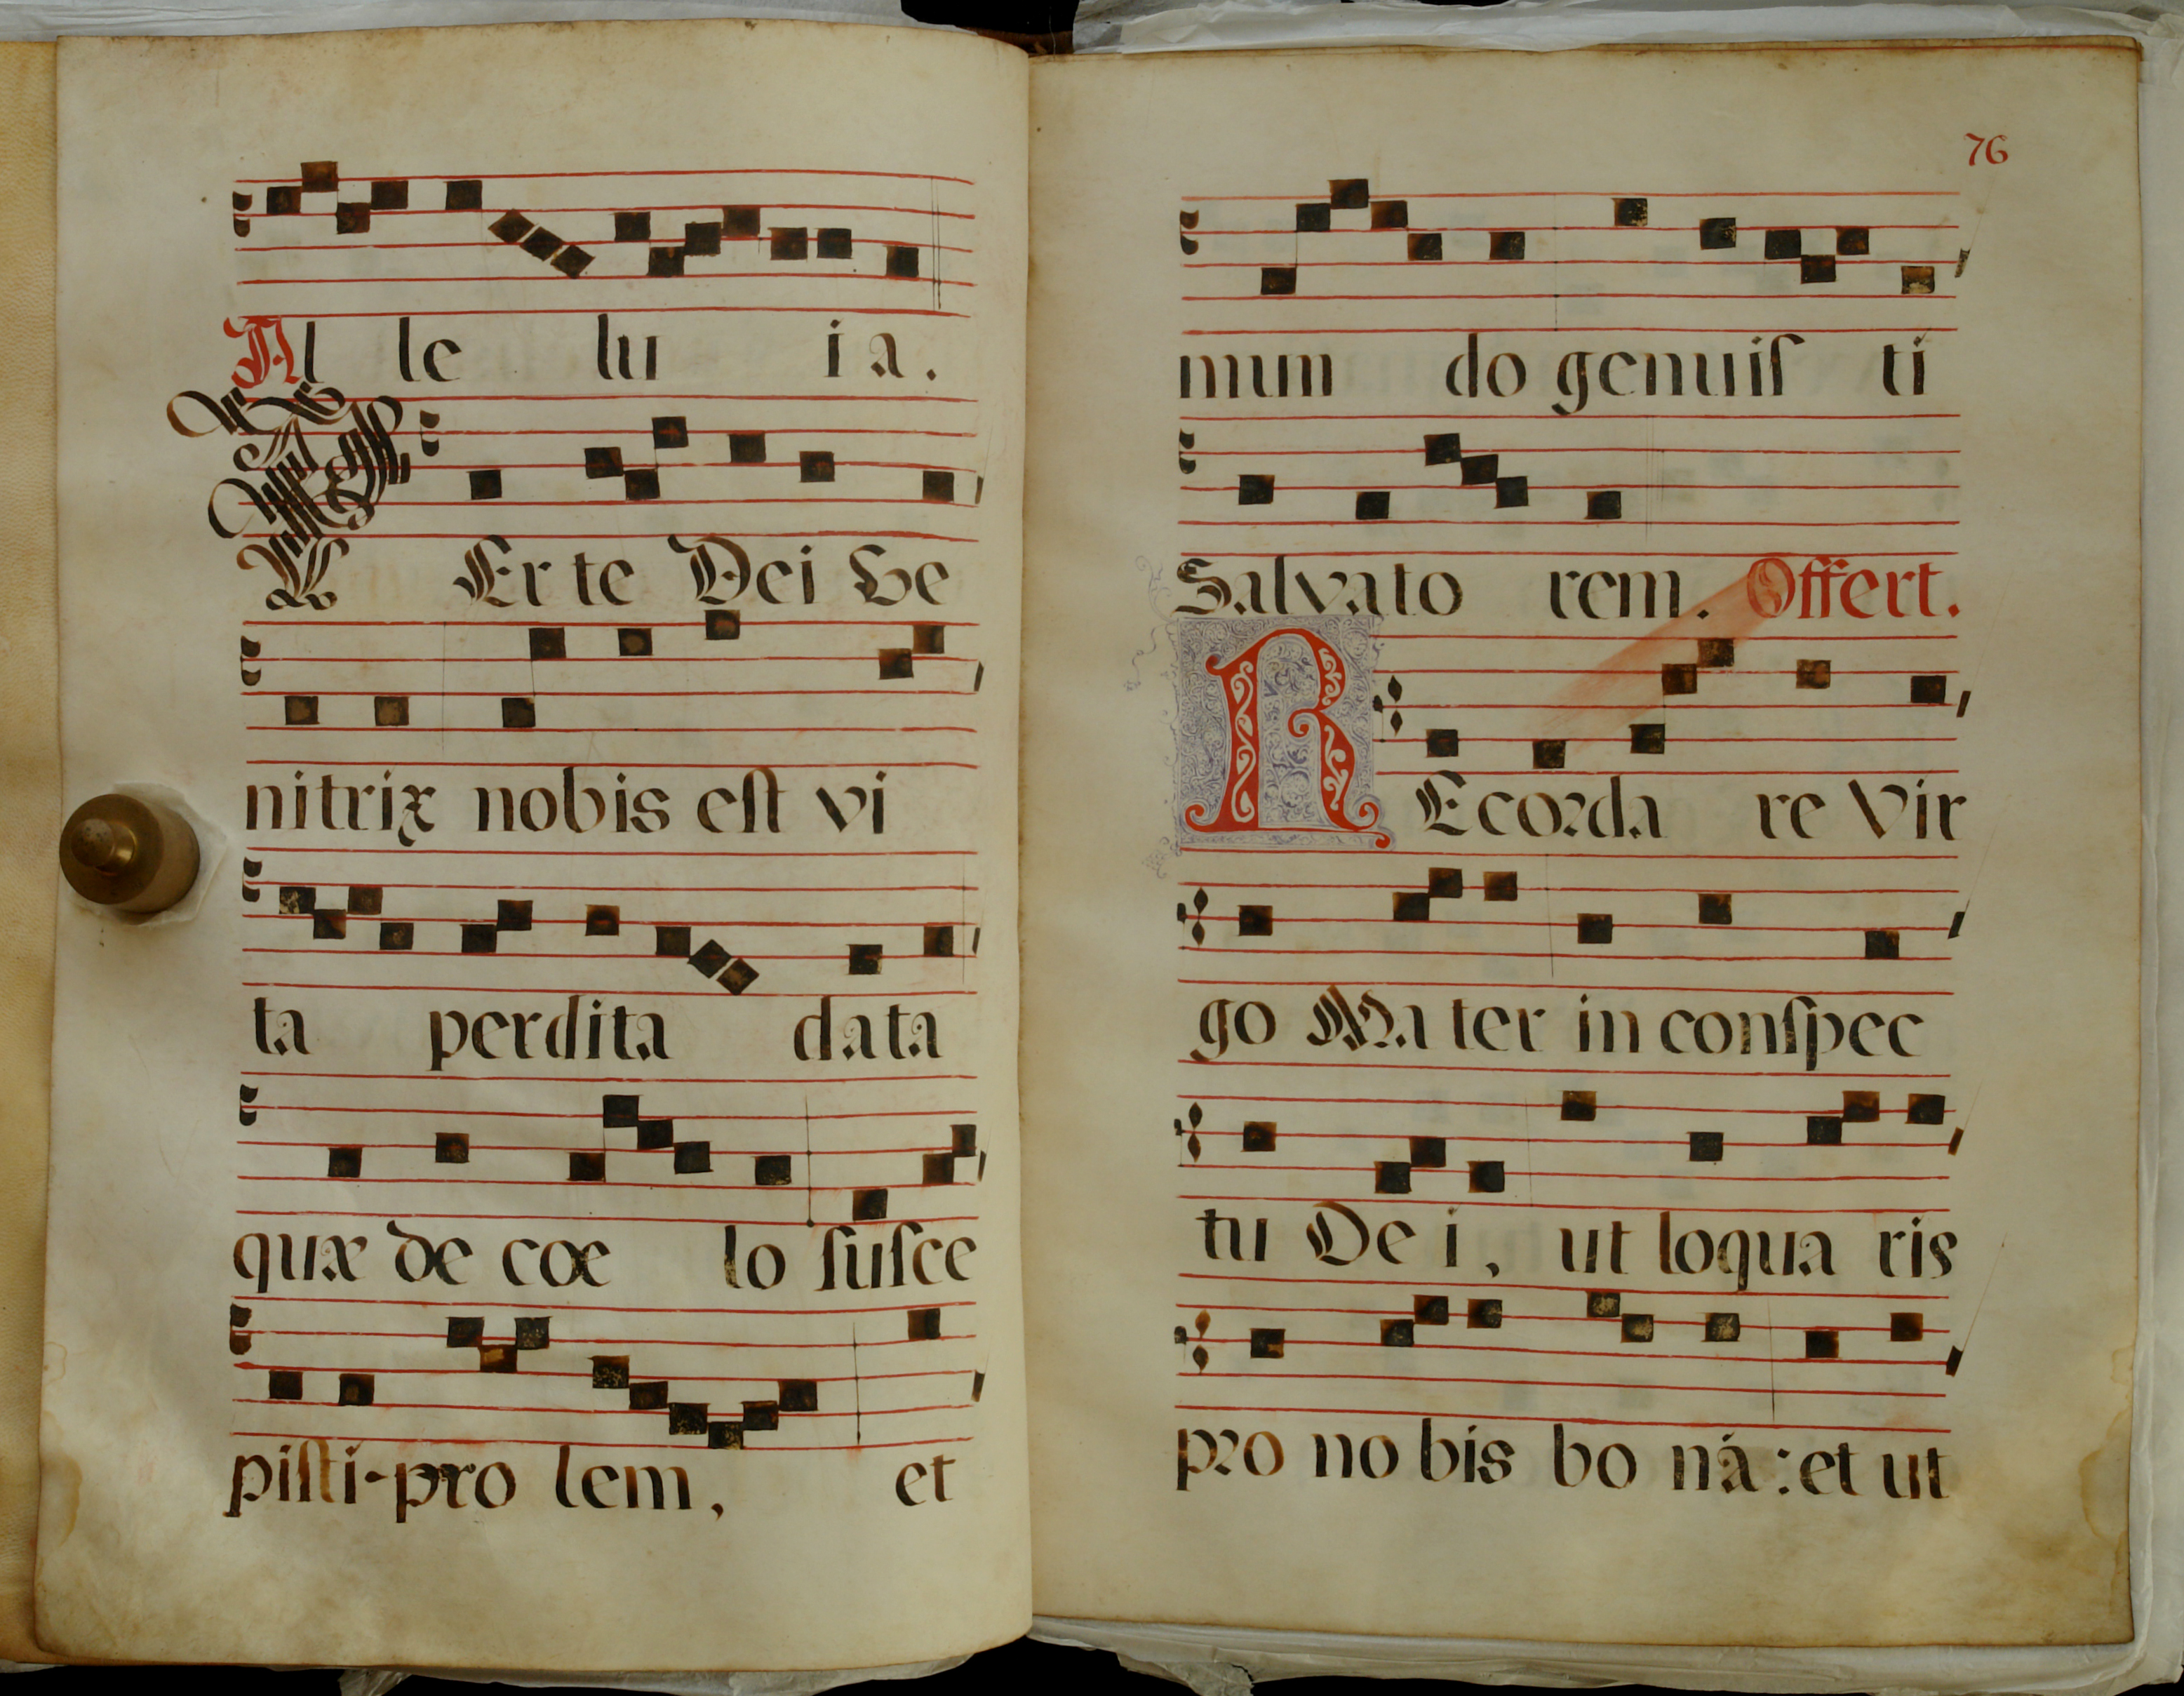 Al le lu ia.
℣ Er te Dei Ge
nitrix nobis eſt vi
ta perdita data
quæ de cœ lo ſuſce
piſti-pro lem, et
76
mun do genuiſ ti
Salvato rem. Offert.
REcorda re Vir
go Ma ter in conſpec
tu De i, ut loqua ris
pro no bis bo nã: et ut